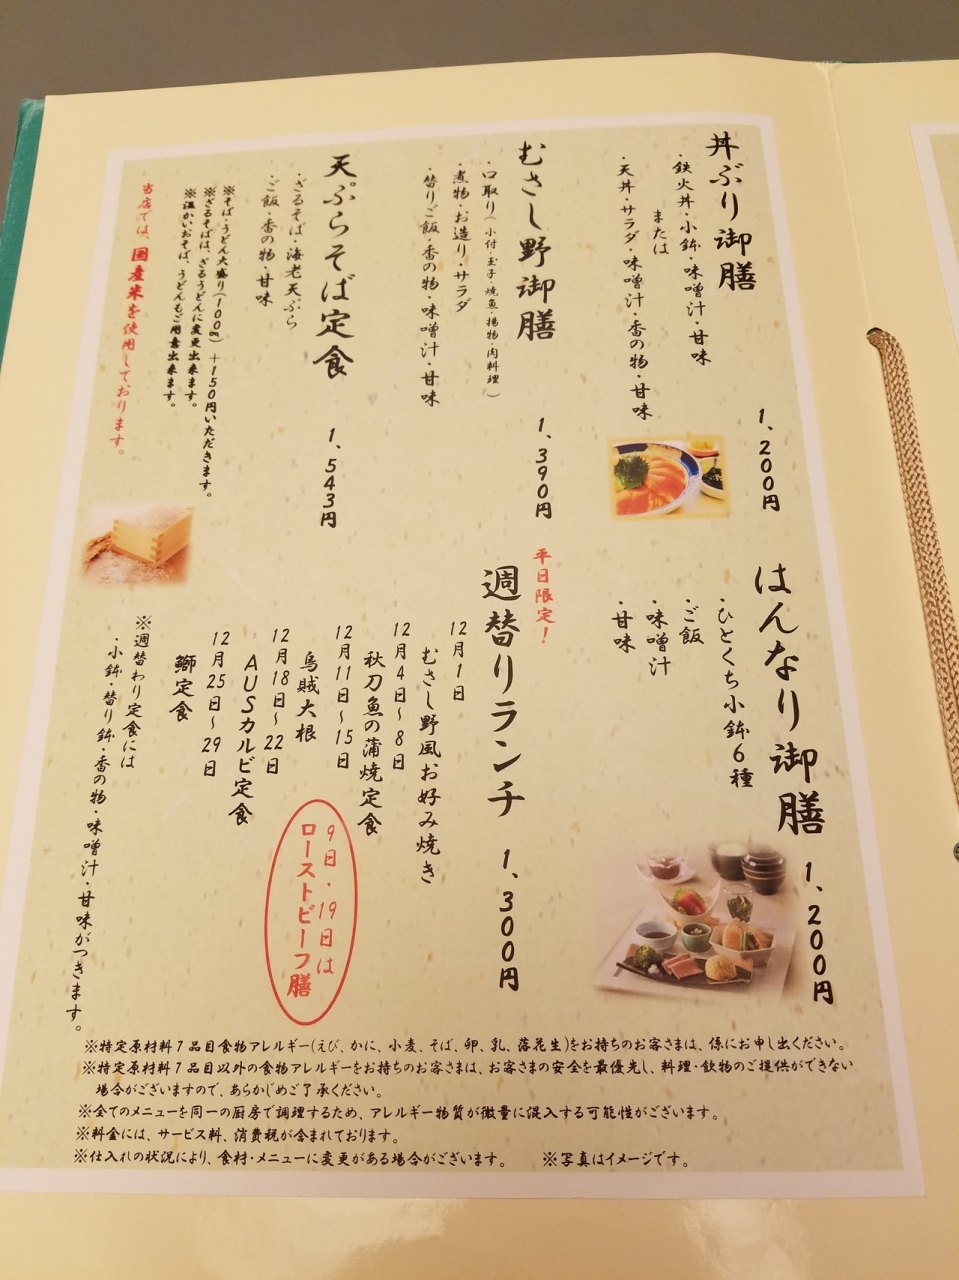 丼ぶり御膳
・鉄火丼・小鉢・味噌汁・甘味
または
・天丼・サラダ・味噌汁・香の物・甘味
1、200円
むさし野御膳
・口取り(小付・玉子・焼魚・揚物・肉料理)
・煮物・お造り・サラダ
・替りご飯・香の物・味噌汁・甘味
1、390円
天ぷらそば定食
・ざるそば・海老天ぷら
・ご飯・香の物・甘味
1、543円
※そば・うどん大盛り(100g)+150円いただきます。
※ざるそばは、ざるうどんに変更出来ます。
※温かいおそば、うどんもご用意出来ます。
当店では、国産米を使用しております。
はんなり御膳
1、200円
・ひとくち小鉢6種
・ご飯
・味噌汁
・甘味
平日限定!
週替りランチ
1、300円
12月1日
むさし野風お好み焼き
12月4日~8日
秋刀魚の蒲焼定食
12月11日~15日
烏賊大根
12月18日~22日
AUSカルビ定食
12月25日~29日
鰤定食
9日・19日は
ローストビーフ膳
※週替わり定食には
・小鉢・替り鉢・香の物・味噌汁・甘味がつきます。
※特定原材料7品目食物アレルギー(えび、かに、小麦、そば、卵、乳、落花生)をお持ちのお客さまは、係にお申し出ください。
※特定原材料7品目以外の食物アレルギーをお持ちのお客さまは、お客さまの安全を最優先し、料理・飲物のご提供ができない
場合がございますので、あらかじめご了承ください。
※全てのメニューを同一の厨房で調理するため、アレルギー物質が微量に混入する可能性がございます。
※料金には、サービス料、消費税が含まれております。
※仕入れの状況により、食材・メニューに変更がある場合がございます。 ※写真はイメージです。